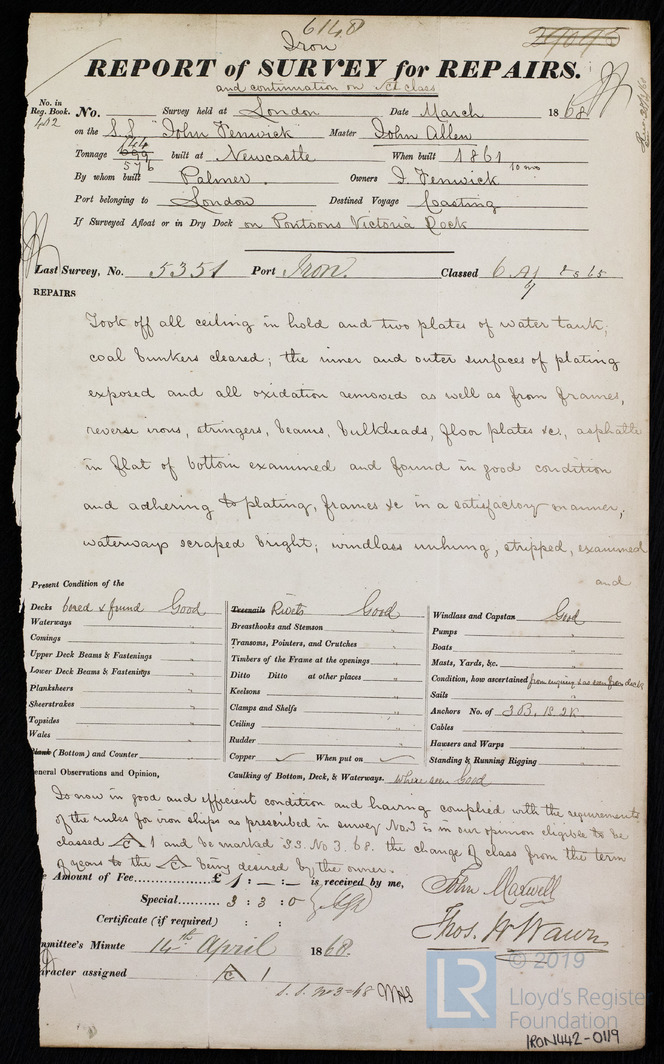 6148
29095
Iron
REPORT of SURVEY for REPAIRS.
and continuation on
class
No. in Reg. Book.
402
No. Survey held at London Date March 1868
on the S.S. "John Fenwick" Master John Allen
Tonnage 699 576 built at Newcastle When built 1861 10 mo
By whom built Palmer. Owners J. Fenwick
Port belonging to London Destined Voyage Coasting
If Surveyed Afloat or in Dry Dock on Pontoons Victoria Dock
Last Survey, No. 5351 Port Iron. Classed 6
REPAIRS
Took off all ceiling in hold and two plates of water tank;
coal bunkers cleared; the inner and outer surfaces of plating
exposed and all oxidation removed as well as from frames,
reverse irons, stringers, beams, bulkheads, floor plates &c., asphalte
in flat of bottom examined and found in good condition
and adhering to plating, frames &c in a satisfactory manner;
waterways scraped bright; windlass unhung, stripped, examined
and
Present Condition of the
Decks bored & found Good
Waterways "
Comings "
Upper Deck Beams & Fastenings "
Lower Deck Beams & Fastenings "
Planksheers "
Sheerstrakes "
Topsides "
Wales "
Plank (Bottom) and Counter "
Treenails Rivets Good
Breasthooks and Stemson "
Transoms, Pointers, and Crutches "
Timbers of the Frame at the openings "
Ditto Ditto at other places "
Keelsons "
Clamps and Shelfs "
Ceiling "
Rudder "
Copper When put on
Caulking of Bottom, Deck, & Waterways. where seen Good
Windlass and Capstan Good
Pumps "
Boats "
Masts, Yards, &c. "
Condition, how ascertained from enquiry & as seen from deck
Sails "
Anchors No. of 3 B. 1 S. 2 K
Cables "
Hawsers and Warps "
Standing & Running Rigging "
General Observations and Opinion,
Is now in good and efficient condition and having complied with the requirements
of the rules for iron ships as prescribed in survey No 3 is in our opinion eligible to be
classed A 1 and be marked S.S. No 3. 68. the change of class from the term
of years to the A being desired by the owner.
Amount of Fee £ 1 : – : – is received by me,
Special 3 : 3 : 0
Certificate (if required) : :
John Maxwell
Thos. H Wawn
mmittee's Minute 14th April 1868.
aracter assigned A 1
S.S. No 3-68 WHS
LR
© 2019
Lloyd's Register
Foundation
IRON442-0119